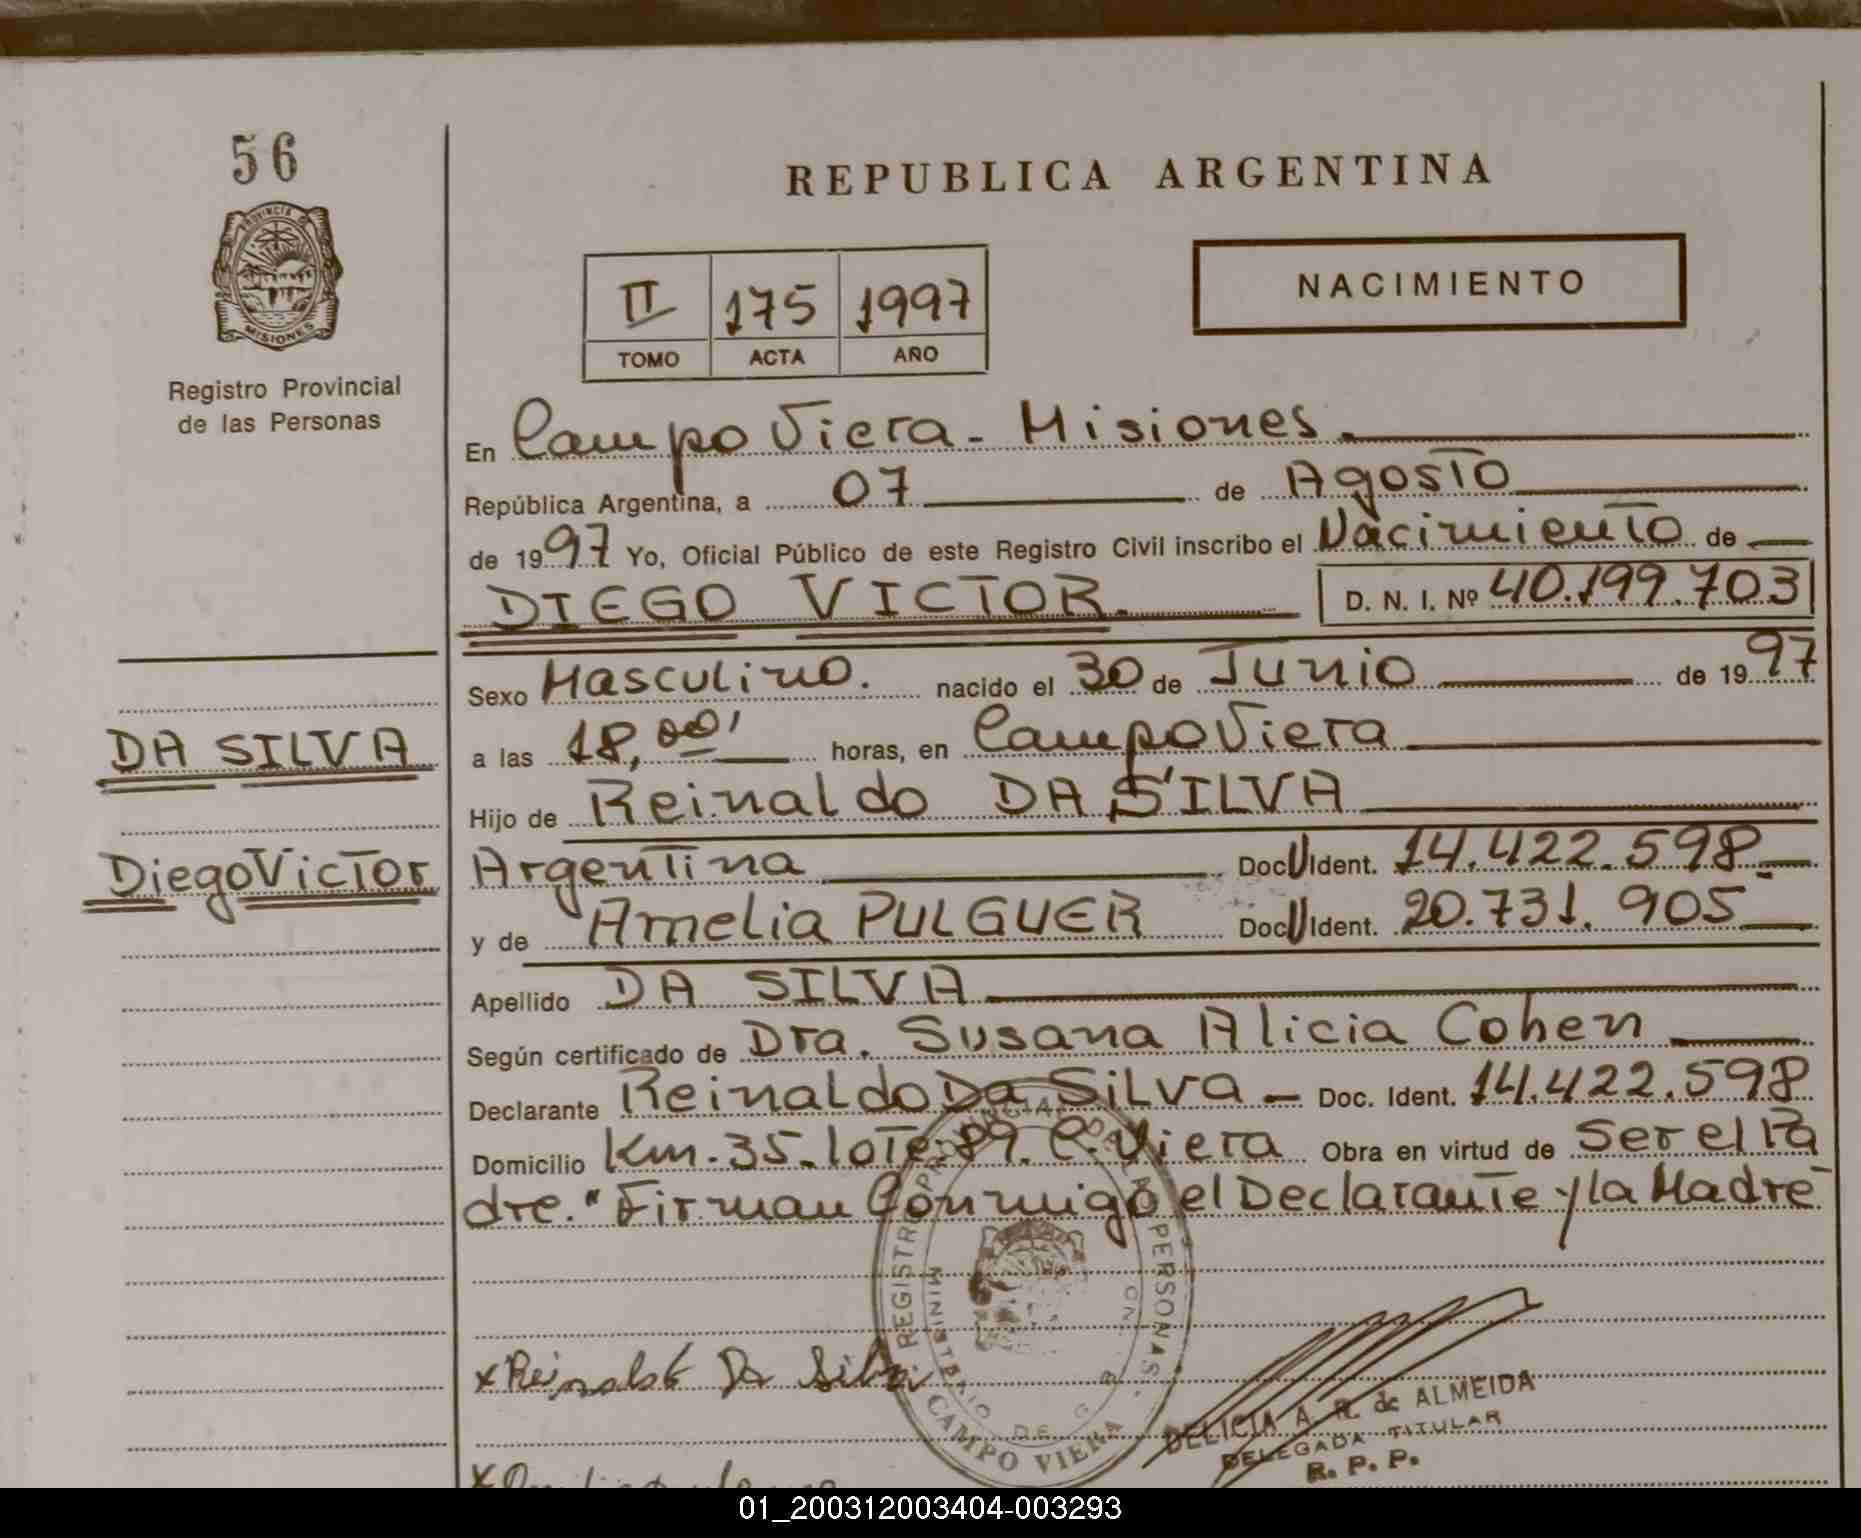 56
PROVINCIA DE
MISIONES
Registro Provincial
de las Personas
REPUBLICA ARGENTINA
II 175 1997
TOMO ACTA AÑO
NACIMIENTO
En Campo Viera - Misiones.
República Argentina, a 07 de Agosto
de 1997 Yo, Oficial Público de este Registro Civil inscribo el Nacimiento de
DIEGO VICTOR. D. N. I. Nº 40.199.703
Sexo Masculino. nacido el 30 de Junio de 1997
DA SILVA
a las 18,00' horas, en Campo Viera
Hijo de Reinaldo DA SILVA
Diego Victor
Argentina Doc U Ident. 14.422.598
y de Amelia PULGUER Doc U Ident. 20.731.905
Apellido DA SILVA
Según certificado de Dra. Susana Alicia Cohen
Declarante Reinaldo Da Silva - Doc. Ident. 14.422.598
Domicilio Km. 35. lote 89. C. Viera Obra en virtud de Ser el Pa
dre. " Firman Conmigo el Declarante y la Madre
REGISTRO PROVINCIAL DE LAS PERSONAS.
MINISTERIO DE G
CAMPO VIERA
x Reinaldo Da Silva
DELICIA A. R. de ALMEIDA
DELEGADA TITULAR
R. P. P.
01_200312003404-003293